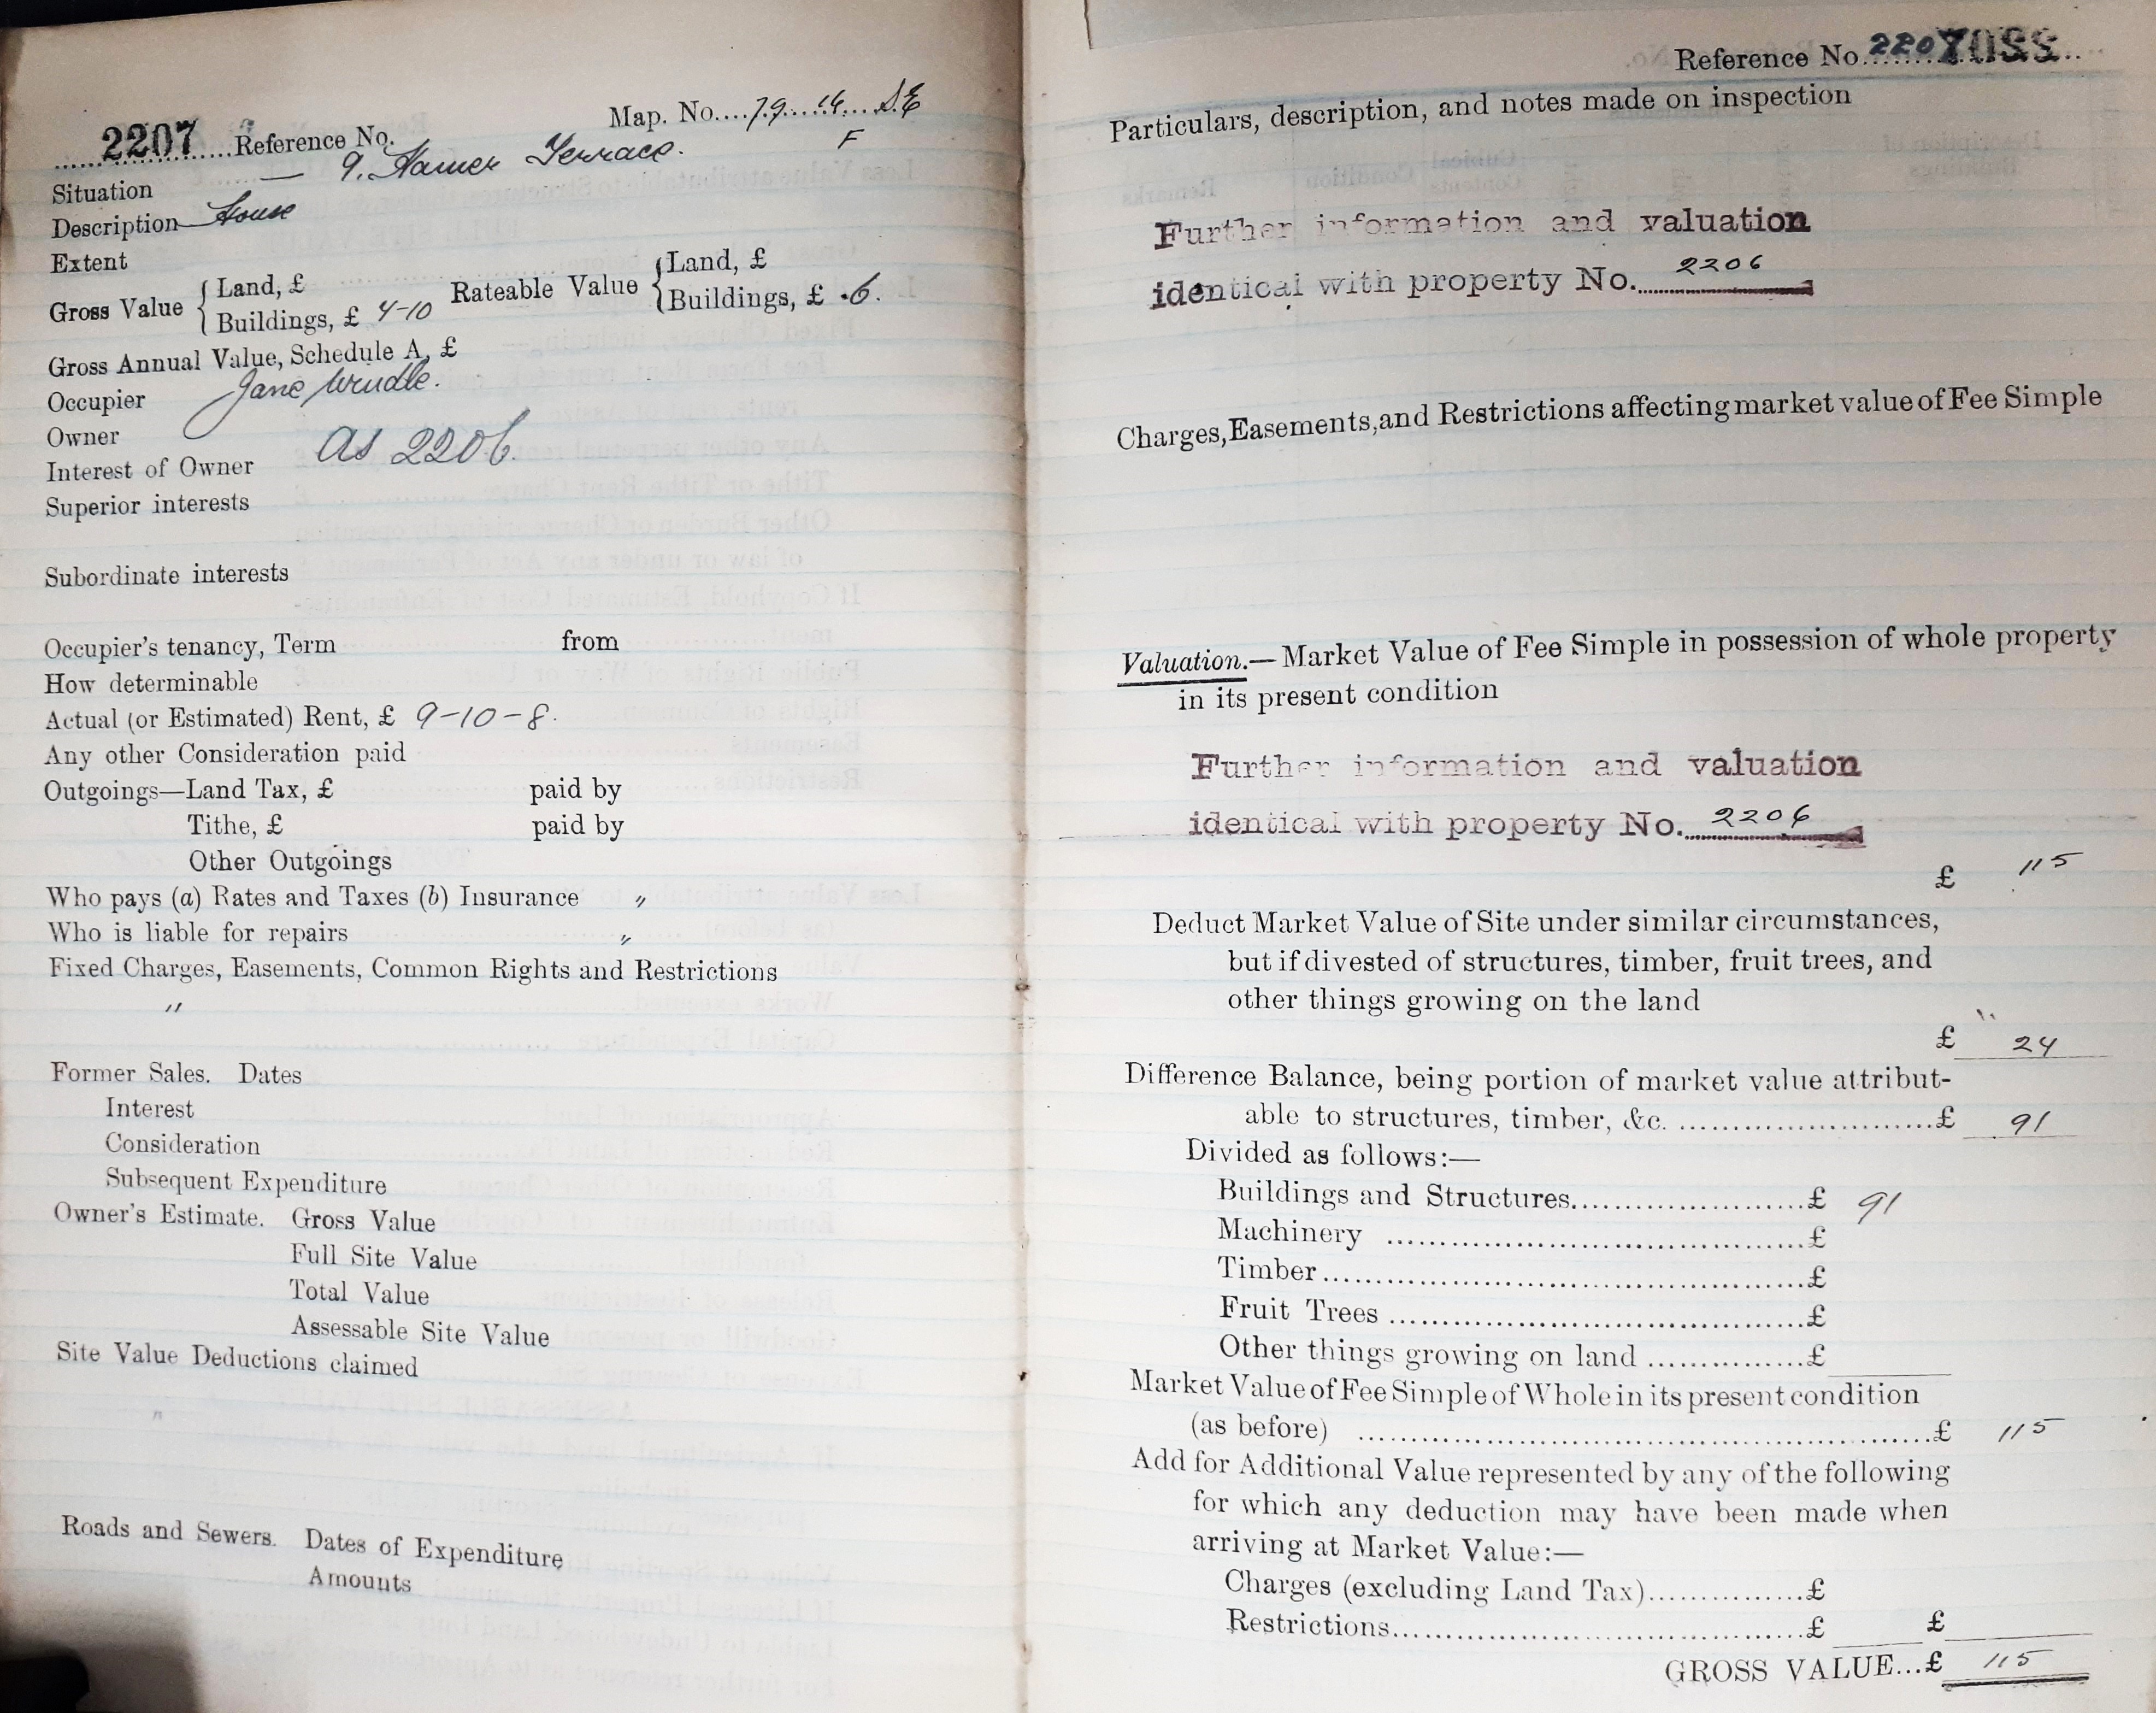 Map. No....79....14.... S.E
F
2207 Reference No.
Situation — 9. Hamer Terrace.
Description House
Extent
Gross Value { Land, £ Rateable Value { Land, £
Buildings, £ 4-10 Buildings, £ .6.
Gross Annual Value, Schedule A, £
Occupier Jane
Owner
As 2206.
Interest of Owner
Superior interests
Subordinate interests
Occupier's tenancy, Term from
How determinable
Actual (or Estimated) Rent, £ 9-10-8.
Any other Consideration paid
Outgoings—Land Tax, £ paid by
Tithe, £ paid by
Other Outgoings
Who pays (a) Rates and Taxes (b) Insurance "
Who is liable for repairs "
Fixed Charges, Easements, Common Rights and Restrictions
"
Former Sales. Dates
Interest
Consideration
Subsequent Expenditure
Owner's Estimate. Gross Value
Full Site Value
Total Value
Assessable Site Value
Site Value Deductions claimed
"
Roads and Sewers. Dates of Expenditure
Amounts
Reference No. 2207
Particulars, description, and notes made on inspection
Further information and valuation
identical with property No. 2206
Charges, Easements, and Restrictions affecting market value of Fee Simple
Valuation.—Market Value of Fee Simple in possession of whole property
in its present condition
Further information and valuation
identical with property No. 2206
£ 115
Deduct Market Value of Site under similar circumstances,
but if divested of structures, timber, fruit trees, and
other things growing on the land
"
£ 24
Difference Balance, being portion of market value attribut-
able to structures, timber, &c. ........................£ 91
Divided as follows:—
Buildings and Structures........................£ 91
Machinery ........................£
Timber........................£
Fruit Trees ........................£
Other things growing on land ...............£
Market Value of Fee Simple of Whole in its present condition
(as before) ........................£ 115
Add for Additional Value represented by any of the following
for which any deduction may have been made when
arriving at Market Value:—
Charges (excluding Land Tax)...............£
Restrictions........................£ £
GROSS VALUE...£ 115